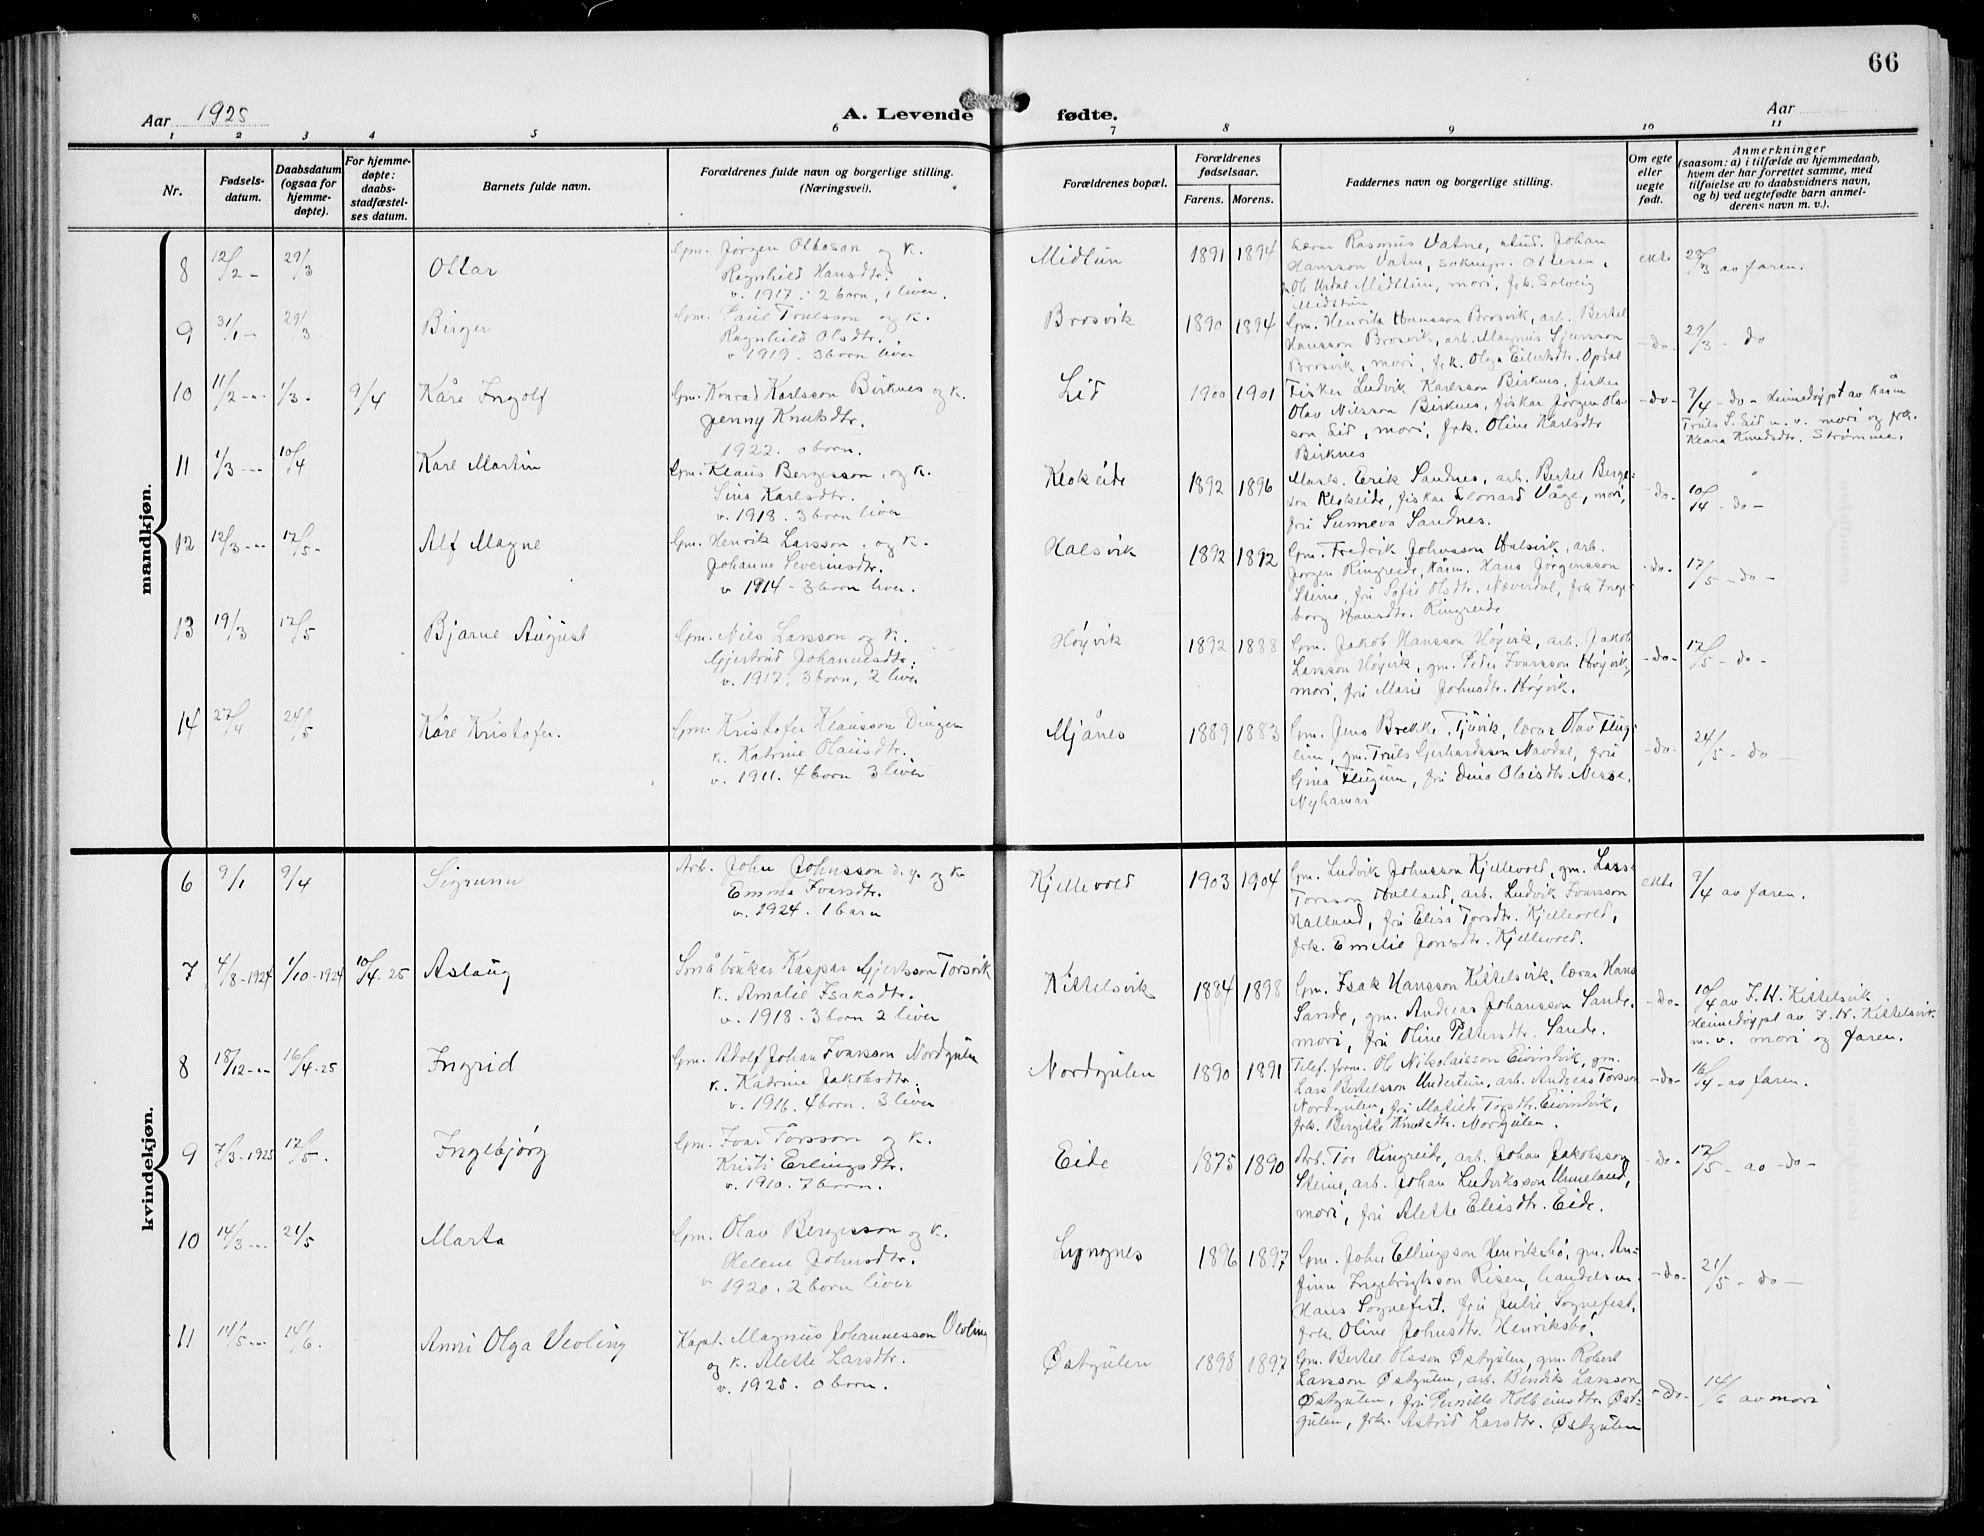 66
Aar 1925
A. Levende fødte.
Aar
1 2 3 4 5 6 7 8 9 10 11
Nr.
Fødsels-
datum.
Daabsdatum
(ogsaa for
hjemme-
døpte).
For hjemme-
døpte:
daabs-
stadfæstel-
ses datum.
Barnets fulde navn.
Forældrenes fulde navn og borgerlige stilling.
(Næringsvei).
Forældrenes bopæl.
Forældrenes
fødselsaar.
Farens. Morens.
Faddernes navn og borgerlige stilling.
Om egte
eller
uegte
født.
Anmerkninger
(saasom: a) i tilfælde av hjemmedaab,
hvem der har forrettet samme, med
tilføielse av to daabsvidners navn,
og b) ved uegtefødte barn anmel-
derens navn m. v.).
mandkjøn.
8 12/2 - 29/3 Ottar
Gm. Jørgen Olteson og k.
Ragnhild Hansdtr.
v. 1917. 2 born, 1 liver.
Midtun 1891 1894
Lærar Rasmus Vatne, stud. Johan
Hansson Vatne, soknepr. Ottesen,
Ole Urdal Midttun, mori, frk. Solveig
Midttun
ekte 29/3 av faren.
9 31/1 - 29/3 Birger
Gm. Paul Trulsson og k.
Ragnhild Olsdtr.
v 1919. 3 born liver
Brosvik 1890 1894
Gm. Henrik Hansson Brosvik, arb. Bertel
Hansson Brosvik, arb. Magnus Sjursson
Brosvik, mori, frk. Olga Eilertsdtr. Opdal
- do - 29/3 - do
10 11/2 - 1/3 - 9/4 Kåre Ingolf
Gm. Konrad Karlsson Birknes og k.
Jenny Knutsdtr.
1922. 0 born.
Lid 1900 1901
Fisker Ludvik Karlsson Birknes, fisker
Olav Nilsson Birknes, fiskar Jørgen Ols-
son Eid, mori, frk. Oline Karlsdtr
Birknes
- do - 9/4 - do - Heimedøypt av Kåsm
Truls S. Eid m. v. mori og frk.
Klara Knudsdtr. Strømme.
11 1/3 - 10/4 Karl Martin
Gm. Klaus Bergesson, og k.
Sina Karlsdtr.
v. 1918. 3 born liver
Klokeide 1892 1896
Mask. Erik Sandnes, arb. Bertel Berge-
son Klokeide, fiskar Leonard Våge, mori,
fru Sunneva Sandnes.
- do - 10/4 - do -
12 12/3 - 17/5 - Alf Magne
Gm. Henrik Larsson, og k.
Johanne Severinsdtr.
v 1914 - 3 born liver.
Halsvik 1892 1892
Gm. Fredrik Johnsson Halsvik, arb.
Jørgen Ringreide, Kåsm. Hans Jørgensson
Steine, fru Sofie Olsdtr. Næverdal, frk Inge-
borg Hansdtr. Ringreide
- do - 17/5 - do -
13 19/3 17/5 Bjarne August
Gm. Nils Larsson og k.
Gjertrud Johannesdtr.
v. 1917, 3 born, 2 liver
Høyvik 1892 1888
Gm. Jakob Hansson Høyvik, arb. Jakob
Larsson Høyvik, gm. Peder Ivarsson Høyvik,
mori, fru Marie Johnsdtr. Høyvik.
- do - 17/5 - do -
14 27/4 24/5 Kåre Kristofer.
Gm. Kristofer Klausson Dingen
k. Katrine Olausdtr.
v. 1911. 4 born 3 liver
Mjånes 1889 1883
Gm. Jens Brekke, Tjuvik, lærar Olav Flug-
eim, gm. Truls Gerhardsson Navdal, fru
Gina Flugum, fru Dina Olaisdtr. Nesse,
Nyhamar
- do - 24/5 - do -
kvindekjøn.
6 9/1 9/4 Sigrunn
Arb. John Johnsson d. y. og k
Emma Ivarsdtr.
v. 1924. 1 barn
Kjellevold 1903 1904
Gm. Ludvik Johnsson Kjellevold, gm. Lars
Torsson Halland, arb. Ludvik Ivarsson
Halland, fru Elisa Torsdtr. Kjellevold,
frk. Emelie Jonsdtr. Kjellevold.
ekte 9/4 av faren.
7 4/8 - 1924 1/10 - 1924 10/4 - 25 Aslaug
Småbrukar Kaspar Gjertsson Torsvik
k. Amalie Isaksdtr.
v. 1918 - 3 born 2 liver
Kittelsvik 1884 1898
Gm. Isak Hansson Kittelsvik, lærar Hans
Sande, gm. Andreas Johansson Sande,
mori, fru Oline Pettersdtr. Sande.
- do - 10/4 av I. H. Kittelsvik
Heimedøypt av I. H. Kittelsvik
m. v. mori og faren.
8 18/12 - 16/4 - 25 Ingrid
Gm. Adolf Johan Ivarsson Nordgulen
k. Katrine Jakobsdtr.
v. 1916. 4 born. 3 liver
Nordgulen 1890 1891
Telef. form. Ole Nikolaisson Eivindvik, gm.
Lars Bertelsson Undertun, arb. Andreas Torsson
Nordgulen, fru Matilde Torsdtr. Eivindvik,
frk. Birgitte Knutsdtr. Nordgulen.
- do - 16/4 - av faren.
9 7/3 - 1925 17/5. Ingebjørg
Gm. Ivar Torsson og k.
Kristi Erlingsdtr.
v. 1910. 7 born.
Eide 1875 1890
Arb. Tor Ringreide, arb. Johan Jakobsson
Steine, arb. Johan Ludviksson Unneland,
mori, fru Alette Elisdtr. Eide.
- do - 17/5 - av - do -
10 14/3 - 21/5 Marta
Gm. Olav Bergesson og k.
Helene Johnsdtr.
v 1920. 2 born liver
Lyngnes 1896 1897
Gm. John Ellingsson Henriksbø, gm. An-
finn Ingebrigtsson Risen, handelsm.
Hans Sognefest, fru Julie Sognefest,
frk. Oline Johnsdtr. Henriksbø.
- do - 21/5 - do -
11 14/5 - 14/6. Anni Olga Veoling
Kapt. Magnus Johannesson Veoling
og k. Alette Larsdtr.
v. 1925. 0 born.
Østgulen 1898 1897
Gm. Bertel Olsson Østgulen, gm. Robert
Larsson Østgulen, arb. Bendik Larsson
Østgulen, fru Pernille Kolbeinsdtr. Øst-
gulen, frk. Astrid Larsdtr. Østgulen
- do - 14/6 av mori